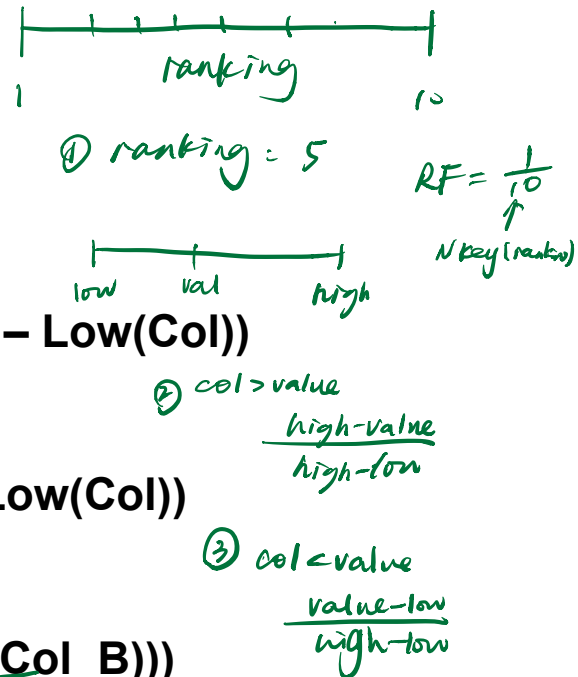 ranking
1 10
① ranking = 5
RF = 1/10
NKey(ranking)
low val high
– Low(Col))
② col > value
high-value
high-low
Low(Col))
③ col < value
value-low
high-low
Col_B)))